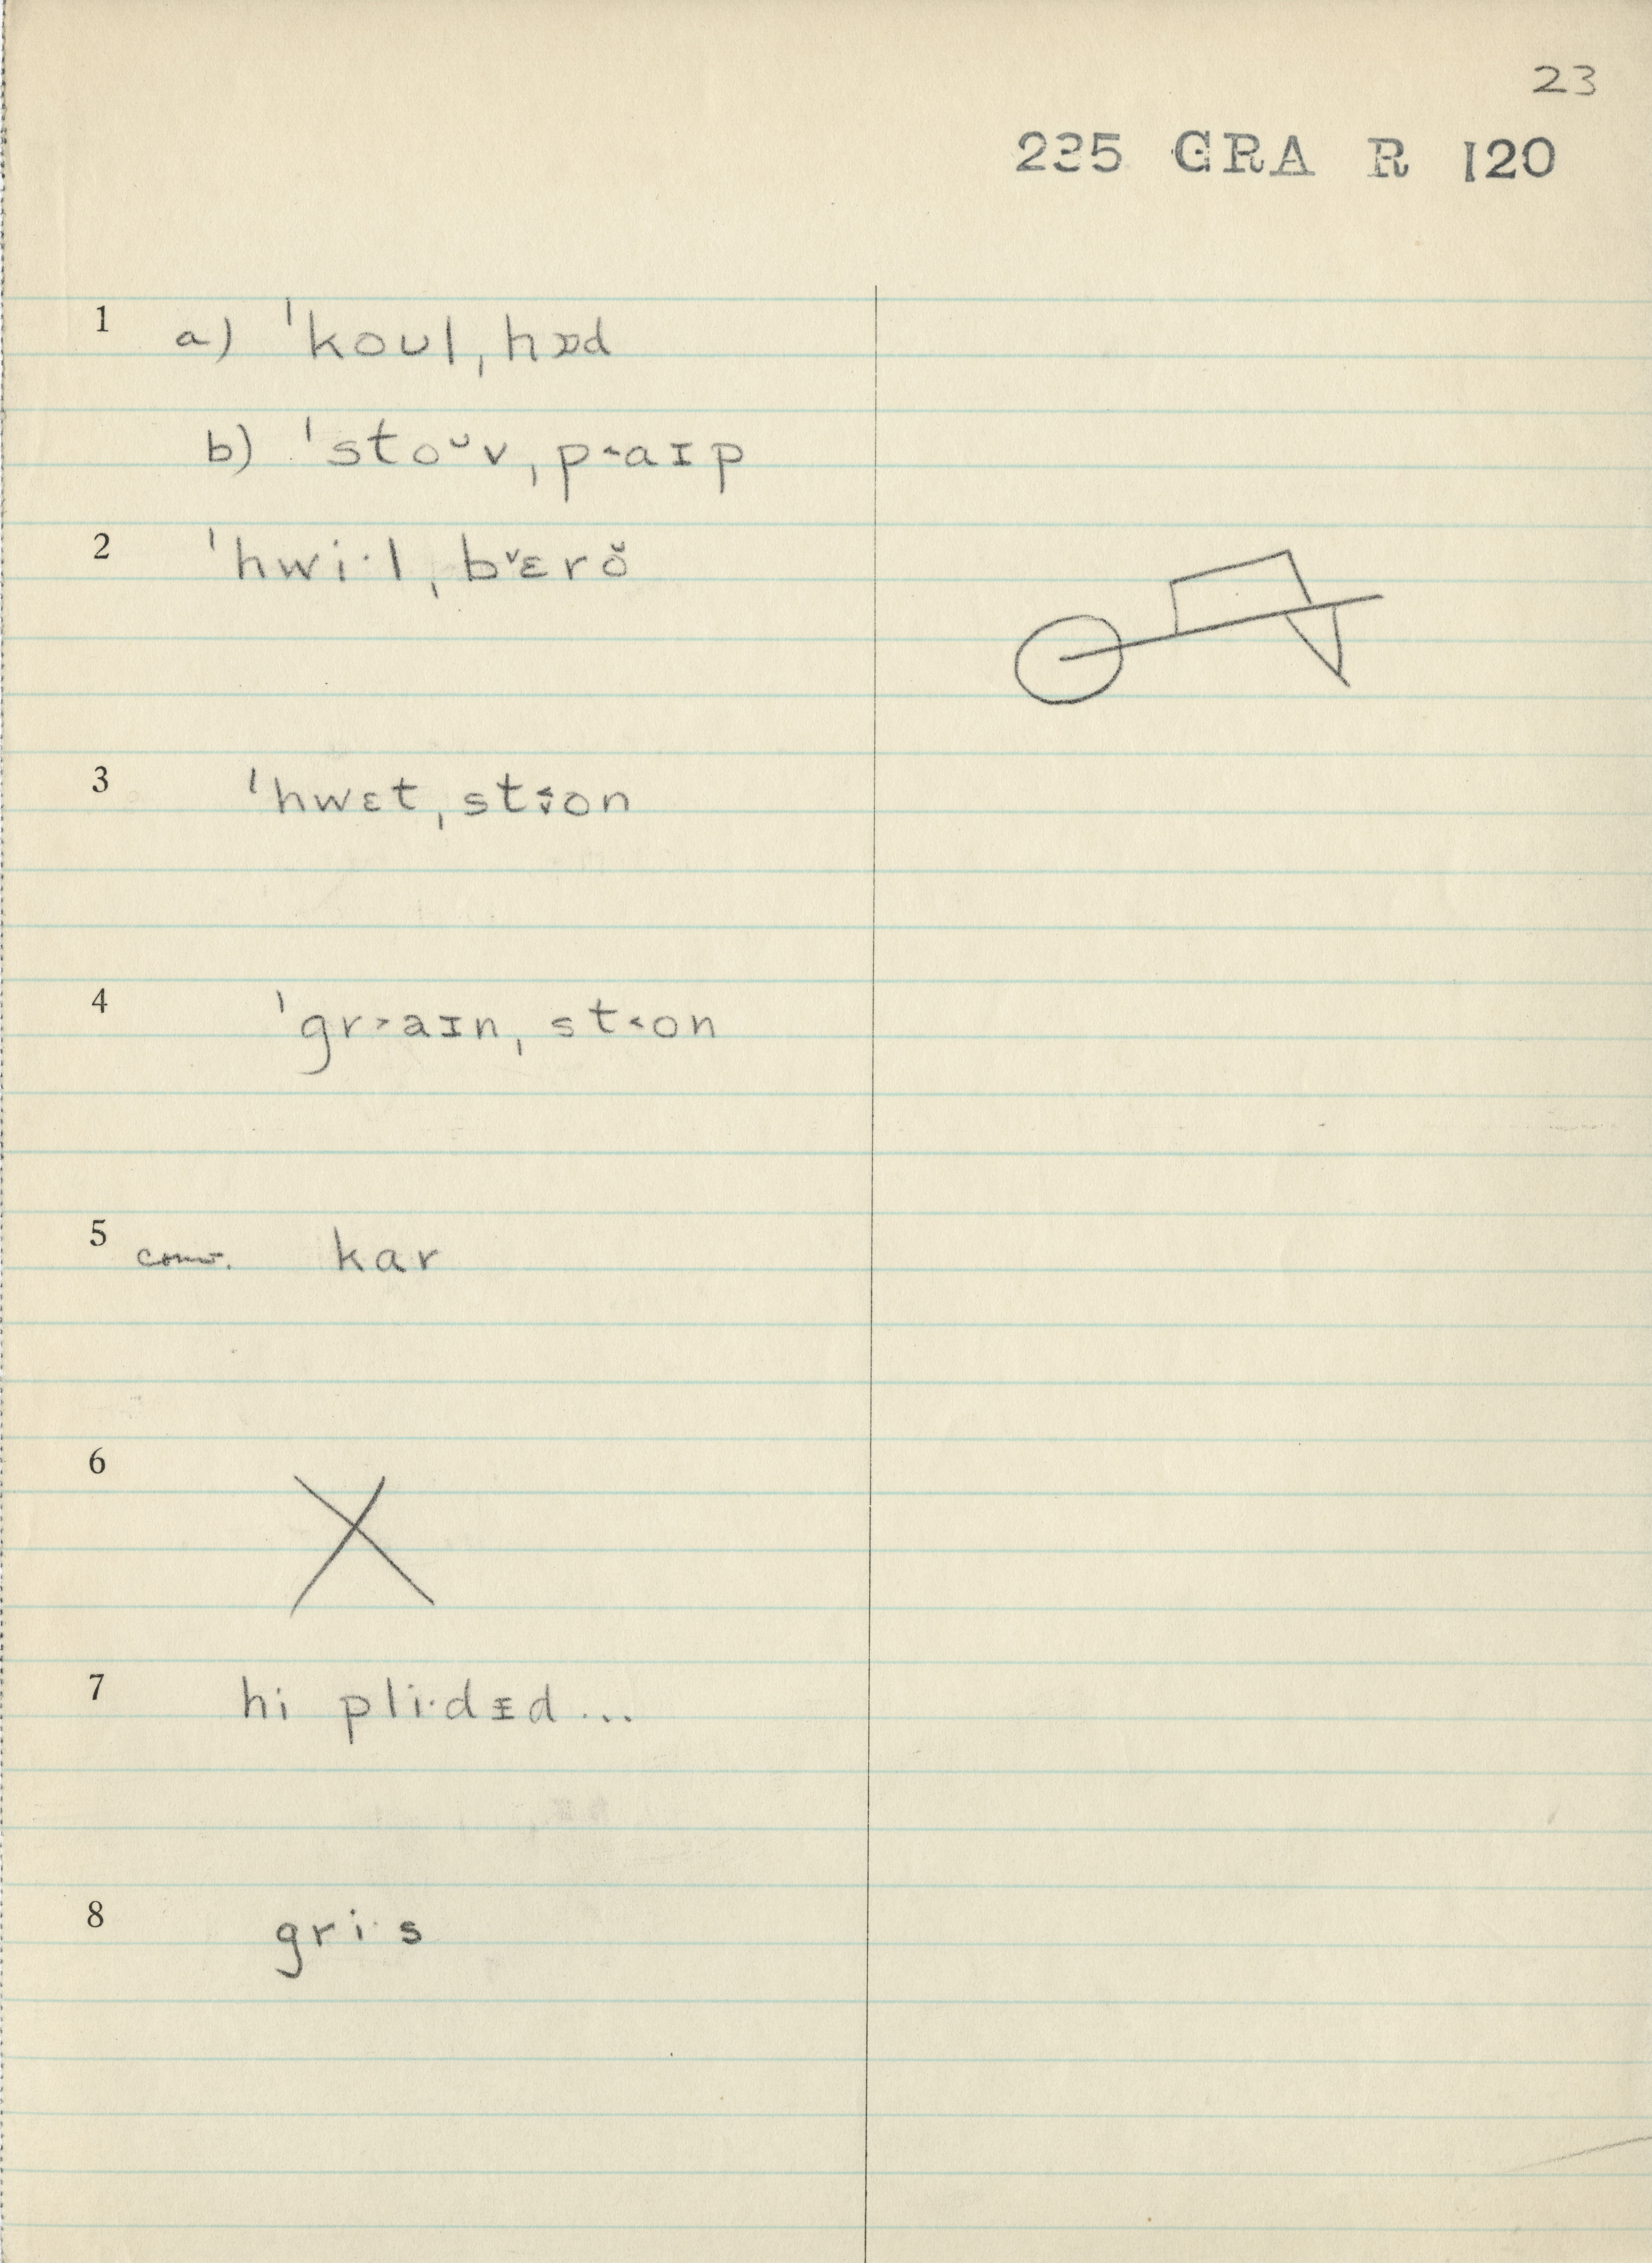 23
225 GRA R 120
1 a) ˈkoʊl ˌhɒd
b) ˈstoᵕv ˌp˂aɪp
2 ˈhwi·l ˌb˅ɛrŏ
3 ˈhwɛt ˌst˂˅on
4 ˈgr˃aɪn ˌst˂on
5 conv. kar
6
7 hi pli·dɪ̵d...
8 gri·s